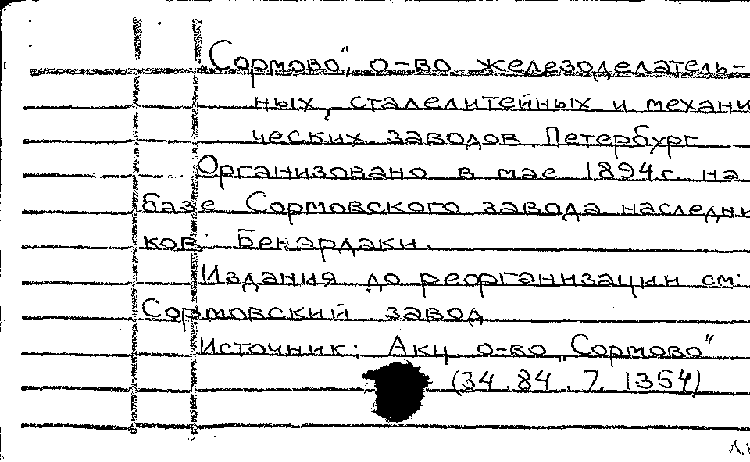 „Сормово", о-во железоделатель-
ных, сталелитейных и механи
ческих заводов, Петербург
Организовано в мае 1894г. на
базе Сормовского завода наследни
ков Бенардаки.
Издания до реорганизации см:
Сормовский завод
Источник: Акц о-во „Сормово"
(34.84.7.1354)